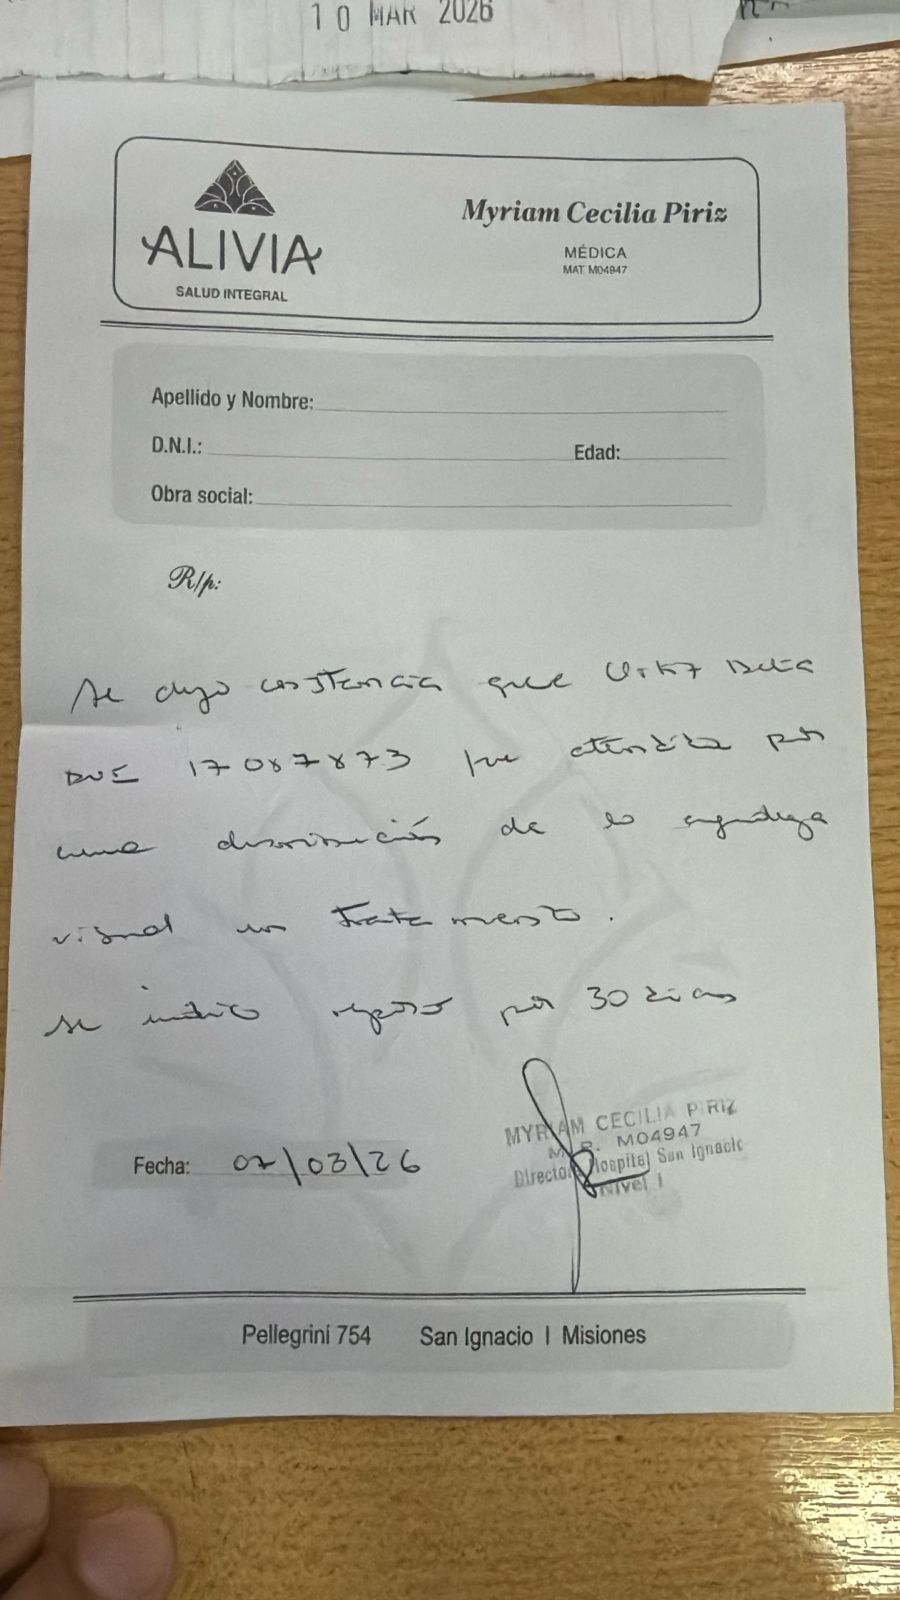 10 MAR 2026
ALIVIA
SALUD INTEGRAL
Myriam Cecilia Piriz
MÉDICA
MAT M04947
Apellido y Nombre:
D.N.I.:
Edad:
Obra social:
R/p:
Se dejo constancia que
DNI 17087873 fue atendida por
una disminución de la agudeza
visual en tratamiento.
se indico reposo por 30 dias
MYRIAM CECILIA PIRIZ
M.P. M04947
Director Hospital San Ignacio
Nivel I
Fecha: 07/03/26
Pellegrini 754 San Ignacio | Misiones